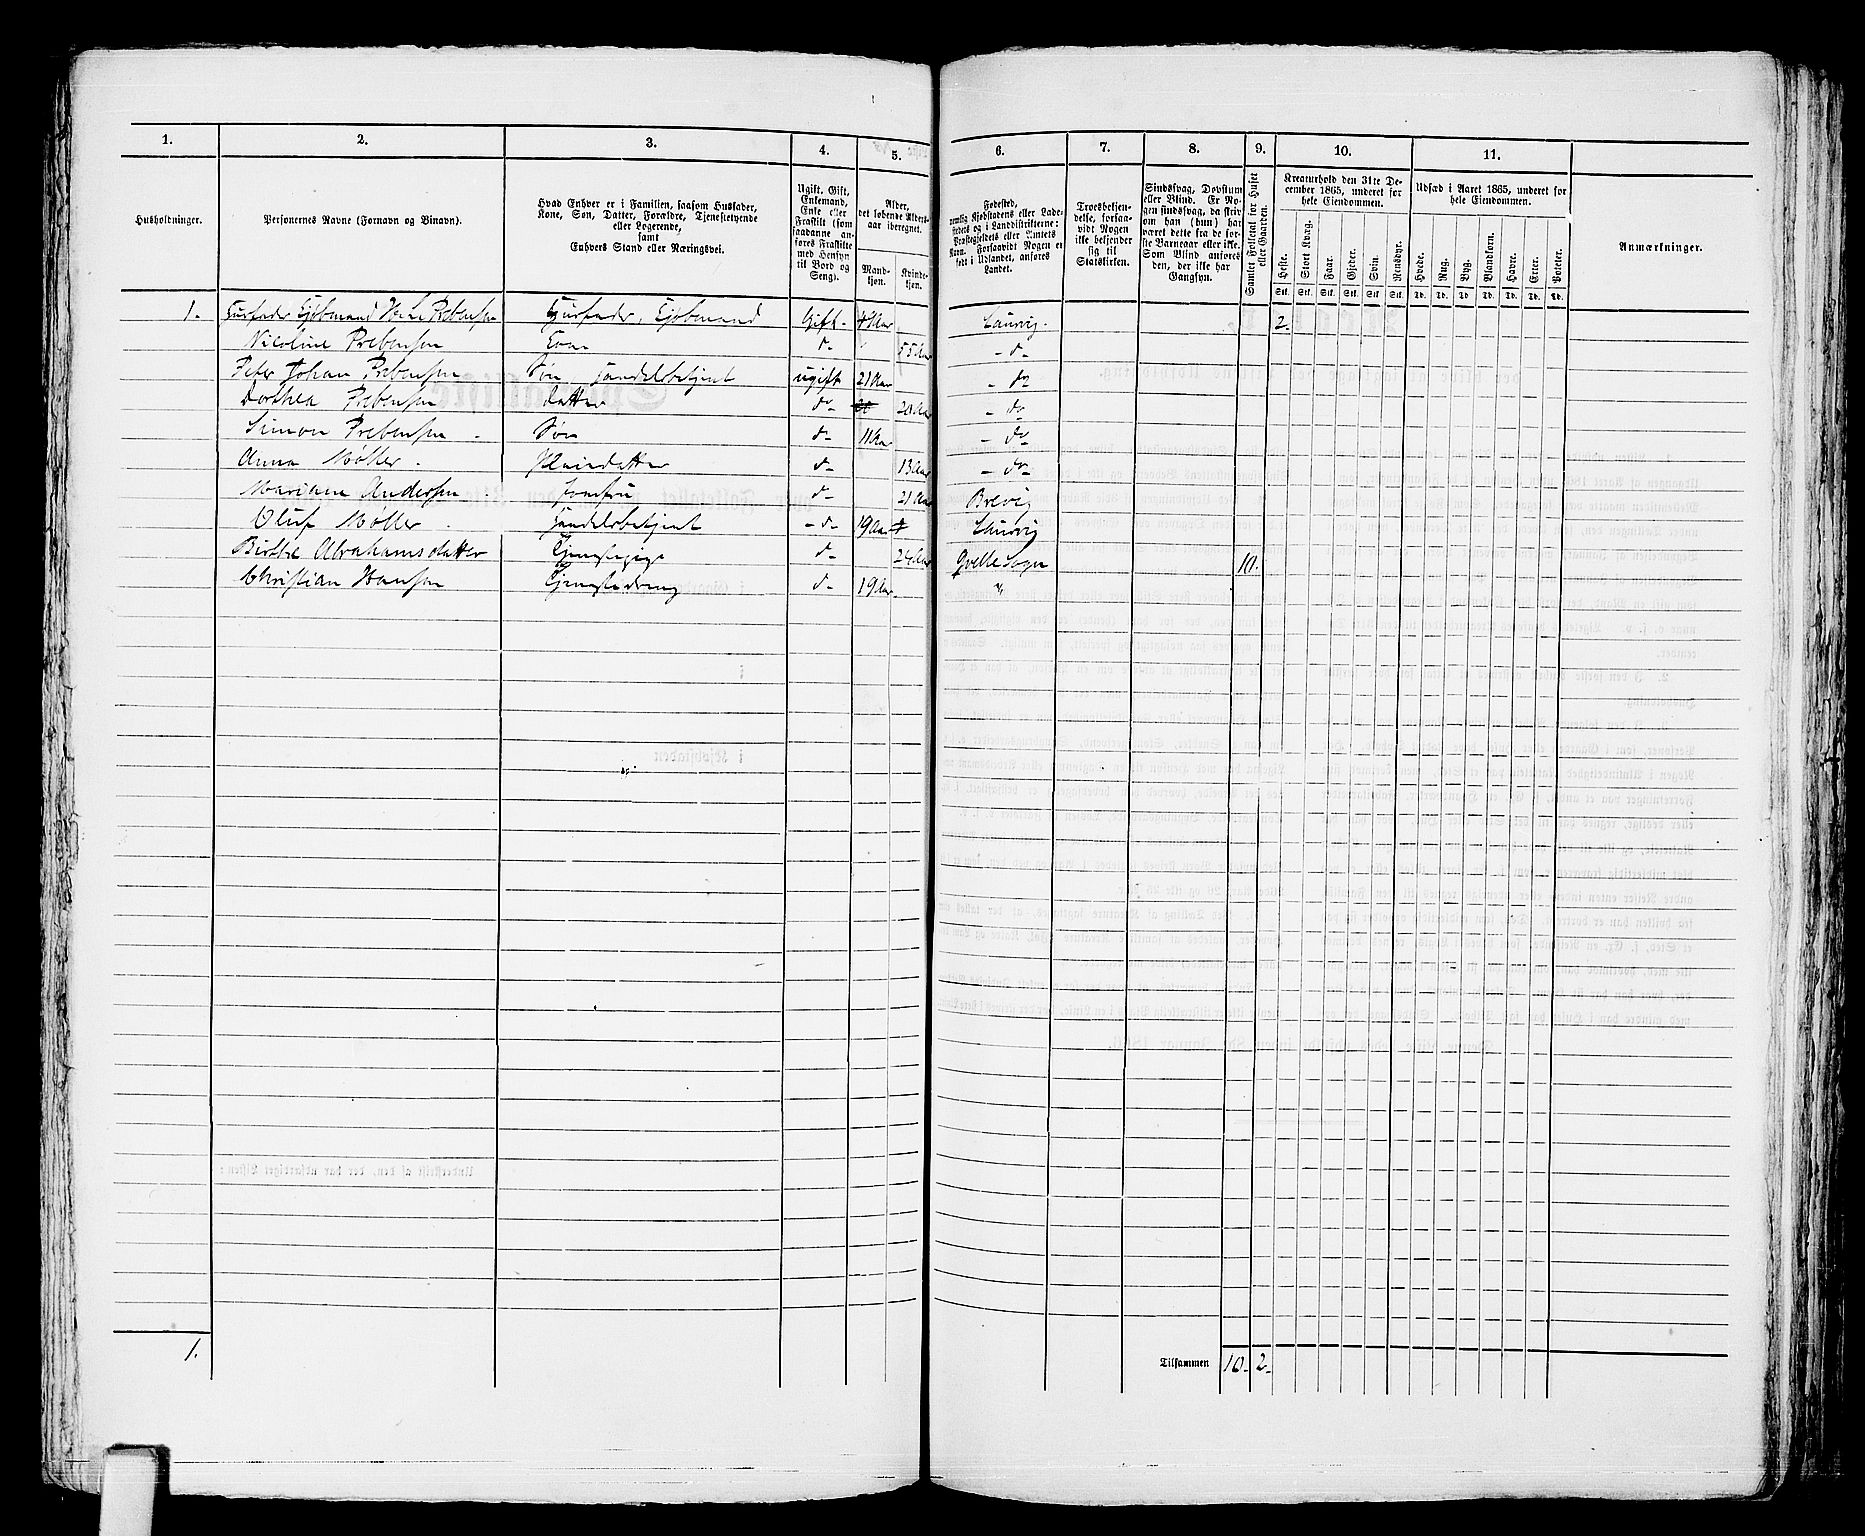 1. 2. 3. 4. 5. 6. 7. 8. 9. 10. 11.
Husholdninger.
Personernes Navne (Fornavn og Binavn).
Hvad Enhver er i Familien, saasom Husfader,
Kone, Søn, Datter, Forældre, Tjenestetyende
eller Logerende,
samt
Enhvers Stand eller Næringsvei.
Ugift, Gift,
Enkemand,
Enke eller
Fraskilt (som
saadanne an-
føres Fraskilte
med Hensyn
til Bord og
Seng).
Alder,
det løbende Alders-
aar iberegnet.
Mand-
kjøn.
Kvinde-
kjøn.
Fødested,
nemlig Kjøbstadens eller Lade-
stedets og i Landdistrikterne:
Præstegjeldets eller Amtets
Navn. Forsaavidt Nogen er
født i Udlandet, anføres
Landet.
Troesbekjen-
delse, forsaa-
vidt Nogen
ikke bekjender
sig til
Statskirken.
Sindssvag, Døvstum
eller Blind. Er No-
gen sindssvag, da skriv
om han (hun) har
været dette fra de før-
ste Barneaar eller ikke.
Som Blind anføres
den, der ikke har
Gangsyn.
Samlet Folketal for Huset
eller Gaarden.
Kreaturhold den 31te De-
cember 1865, underet for
hele Eiendommen.
Heste. Stort Kvæg. Faar. Gjeder. Svin. Rensdyr.
Stk. Stk. Stk. Stk. Stk. Stk.
Udsæd i Aaret 1865, underet for
hele Eiendommen.
Hvede. Rug. Byg. Blandkorn. Havre. Erter. Poteter.
Td. Td. Td. Td. Td. Td. Td.
Anmærkninger.
1. Husfader Kjøbmand Prebensen Husfader, Kjøbmand Gift Laurvig. 2.
Nicoline Prebensen Kone d- 55 Aar - d-
Peter Johan Prebensen Søn Handelsbetjent ugift 21 Aar - do
Dorthea Prebensen datter d- 20 Aar - do
Simon Prebensen Søn d- 11 Aar - do
Anna Møller Pleiedatter d- 13 Aar - do
Mariane Andersen Jomfru d- 21 Aar Brevig
Oluf Møller Handelsbetjent - d- 19 Aar Laurvig
Birthe Abrahamsdatter Tjenestepige d- 24 Aar Qvelle Sogn 10.
Christian Hansen Tjenestedreng d- 19 Aar
1.
Tilsammen 10. 2.